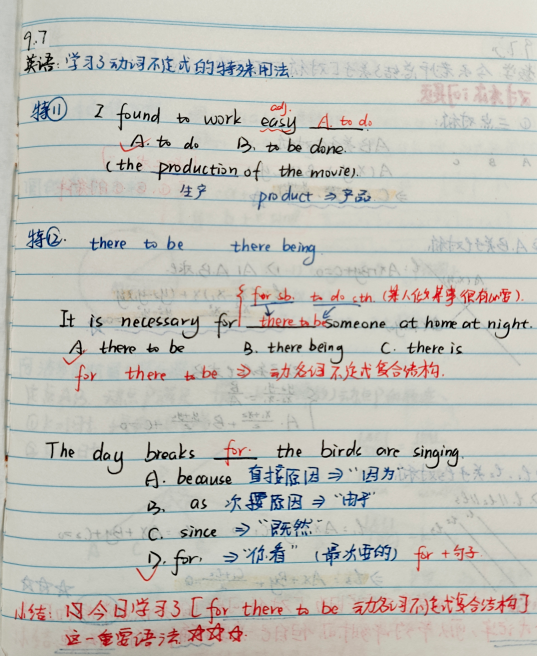 9.7
英语：学习了动词不定式的特殊用法.
特(11) I found to work easy A. to do
adj.
A. to do B. to be done.
(the production of the movie).
生产 product ⇒ 产品
特(12). there to be there being
for sb. to do sth. (某人做某事很有必要).
It is necessary for there to be someone at home at night.
A. there to be B. there being C. there is
for there to be ⇒ 动名词不定式复合结构.
The day breaks for. the birds are singing.
A. because 直接原因 ⇒ "因为"
B. as 次要原因 ⇒ "由于"
C. since ⇒ "既然"
D. for, ⇒ "你看" (最次要的) for + 句子
小结: 今日学习了 [for there to be 动名词不定式复合结构]
这一重要语法 ☆☆☆.